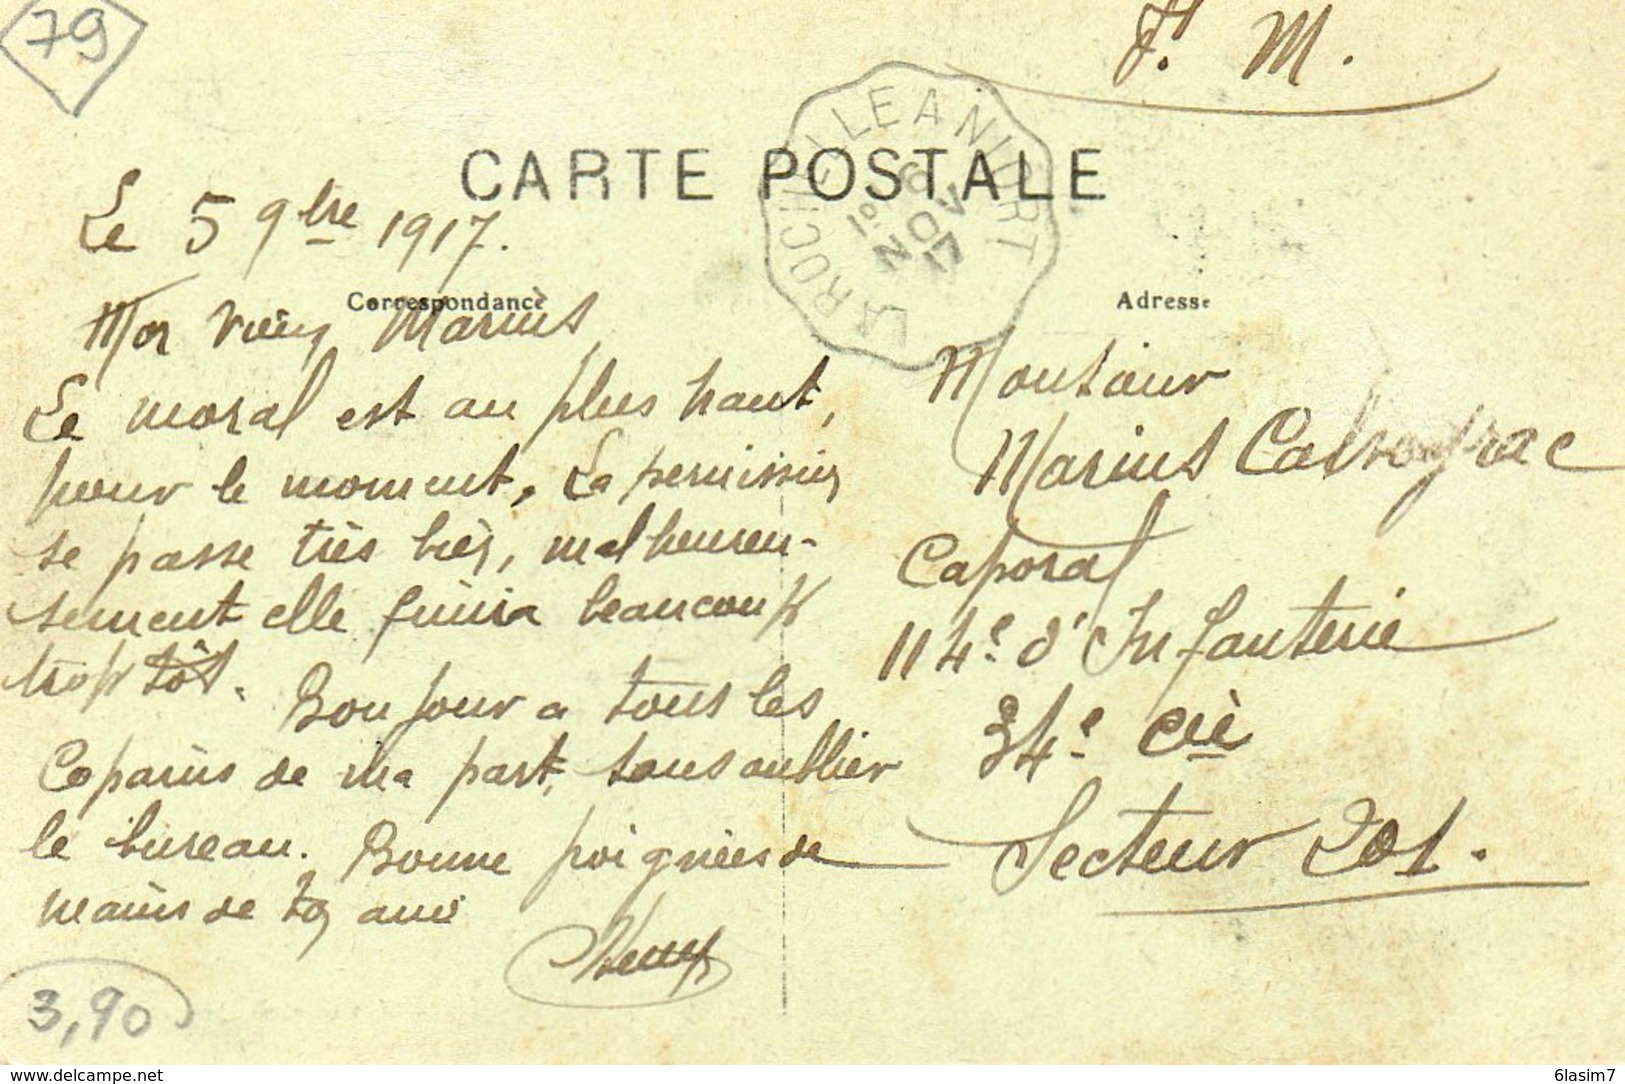 79
F. M.
CARTE POSTALE
LA ROCHELLE A NIORT
1o 6
NOV
17
Le 5 9bre 1917.
Correspondance
Adresse
Mon vieux Marius
Le moral est au plus haut,
pour le moment. La permission
se passe très bien, malheureu-
sement elle finira beaucoup
trop tôt. Bonjour a tous les
Copains de ma part, sans oublier
le bureau. Bonne poignées de
mains de ton ami
Monsieur
Marius
Caporal
114e d'Infanterie
34e Cie
Secteur 201.
3,90
www.delcampe.net
6lasim7